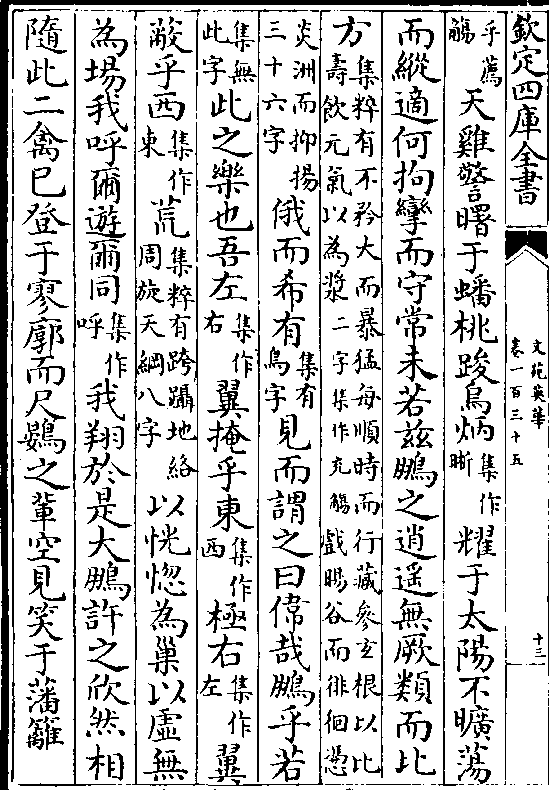 欽定四庫全書
文苑英華
卷一百三十五
十三
乎薦觴天雞警曙于蟠桃踆烏炳集作晰耀于太陽不曠蕩
而縱適何拘攣而守常未若茲鵬之逍遙無厥類而比
方集粹有不矜大而暴猛每順時而行藏參玄根以比壽飲元氣以為漿二字集作充觴戲暘谷而徘徊憑
炎洲而抑揚三十六字俄而希有集有鳥字見而謂之曰偉哉鵬乎若
集無此字此之樂也吾左集作右翼掩乎東集作西極右集作左翼
蔽乎西集作東荒集粹有跨躡地絡周旋天綱八字以恍惚為巢以虛無
為場我呼爾遊爾同集作呼我翔於是大鵬許之欣然相
隨此二禽已登于寥廓而尺鷃之輩空見笑于藩籬